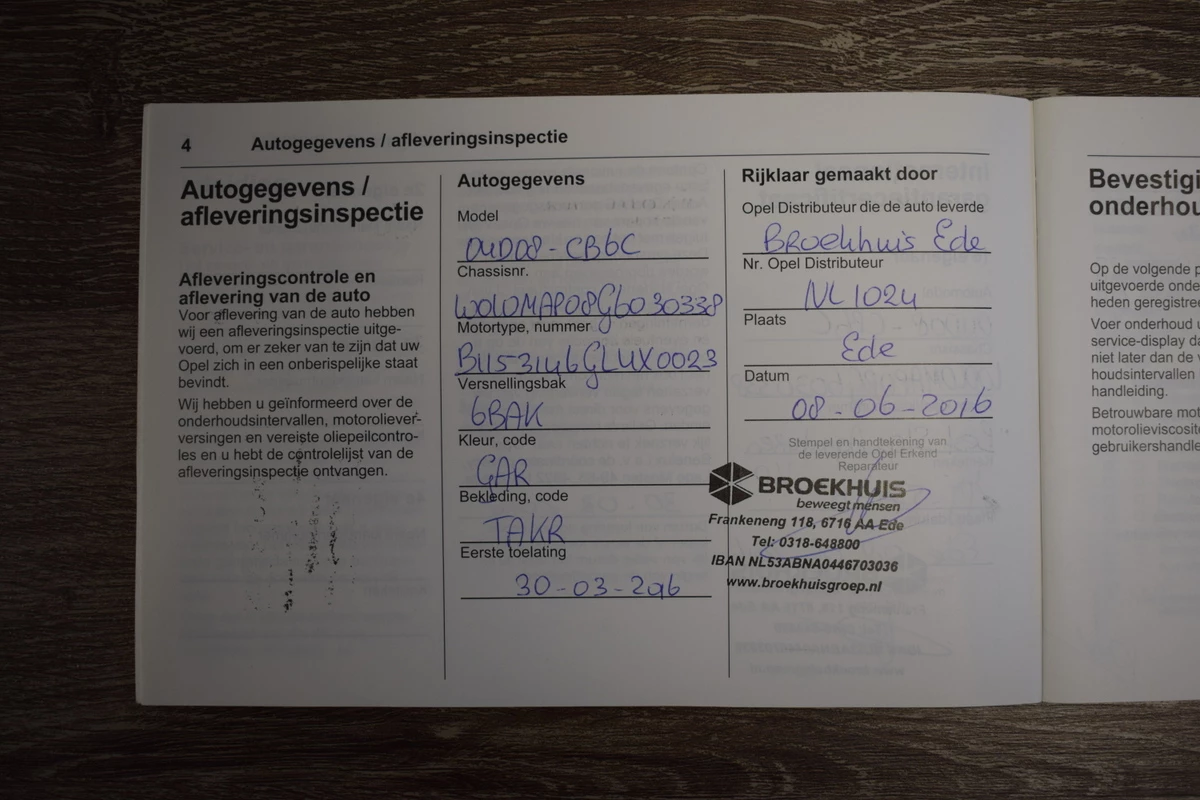 4 Autogegevens / afleveringsinspectie
Autogegevens /
afleveringsinspectie
Afleveringscontrole en
aflevering van de auto
Voor aflevering van de auto hebben
wij een afleveringsinspectie uitge-
voerd, om er zeker van te zijn dat uw
Opel zich in een onberispelijke staat
bevindt.
Wij hebben u geïnformeerd over de
onderhoudsintervallen, motoroliever-
versingen en vereiste oliepeilcontro-
les en u hebt de controlelijst van de
afleveringsinspectie ontvangen.
Autogegevens
Model
0UD08-CB6C
Chassisnr.
W0L0MAP08G6030338
Motortype, nummer
B1153146GLUX0023
Versnellingsbak
6BAK
Kleur, code
GAR
Bekleding, code
TAKR
Eerste toelating
30-03-2016
Rijklaar gemaakt door
Opel Distributeur die de auto leverde
Broekhuis Ede
Nr. Opel Distributeur
NL1024
Plaats
Ede
Datum
08-06-2016
Stempel en handtekening van
de leverende Opel Erkend
Reparateur
BROEKHUIS
beweegt mensen
Frankeneng 118, 6716 AA Ede
Tel: 0318-648800
IBAN NL53ABNA0446703036
www.broekhuisgroep.nl
Bevestigi
onderhou
Op de volgende p
uitgevoerde onde
heden geregistree
Voer onderhoud u
service-display da
niet later dan de v
houdsintervallen
handleiding.
Betrouwbare mot
motorolieviscosite
gebruikershandle